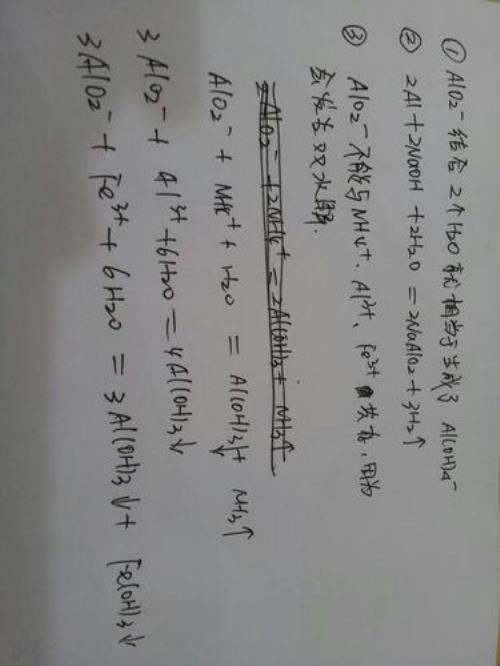 ① AlO2- 结合 2个 H2O 就相当于生成了 Al(OH)4-
② 2Al + 2NaOH + 2H2O = 2NaAlO2 + 3H2↑
③ AlO2- 不能与 NH4+、Al3+、Fe3+ 共存，因为
会发生双水解.
2AlO2- + 2NH4+ = 2Al(OH)3 + NH3↑
AlO2- + NH4+ + H2O = Al(OH)3↓ + NH3↑
3AlO2- + Al3+ + 6H2O = 4Al(OH)3↓
3AlO2- + Fe3+ + 6H2O = 3Al(OH)3↓ + Fe(OH)3↓